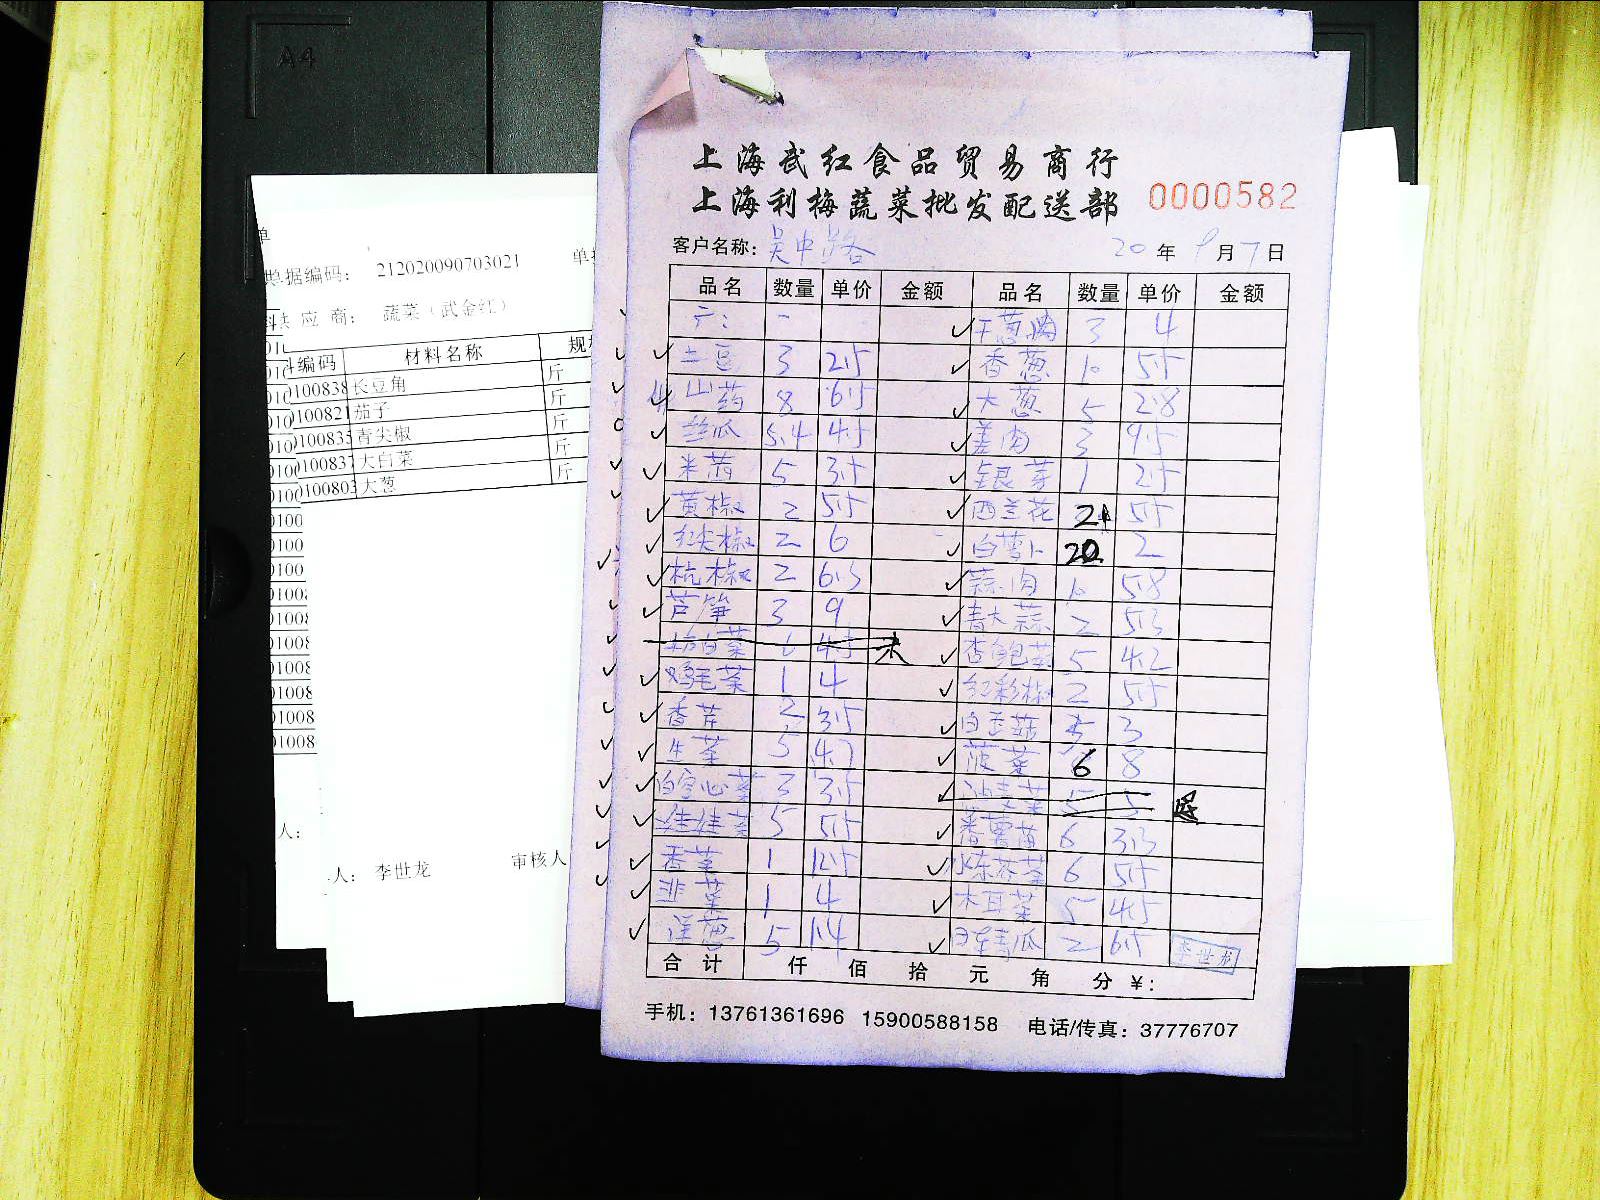 A4
单
单据编码： 212020090703021 单据
供 应 商： 蔬菜（武金红）
编码 材料名称 规
0100838 长豆角 斤
0100821 茄子 斤
0100835 青尖椒 斤
010083 大白菜 斤
0100803 大葱 斤
0100
0100
0100
01008
01008
01008
01008
01008
01008
人：
人： 李世龙 审核人
上海武红食品贸易商行
上海利梅蔬菜批发配送部 0000582
客户名称： 吴中路 20 年 9 月 7 日
品名 数量 单价 金额 品名 数量 单价 金额
3 4
土豆 3 2.5 香葱 10 5.5
山药 8 6.5 大葱 5 2.8
丝瓜 5.4 4.5 姜肉 3 9.5
米茜 5 3.5 银芽 1 2.5
黄椒 2 5.5 西兰花 21 5.5
红尖椒 2 6 白萝卜 20 2
杭椒 2 6.5 蒜肉 10 5.8
芦笋 3 9 青大蒜 2 5.3
未 杏鲍菇 5 4.2
鸡毛菜 1 4 红彩椒 2 5.5
香芹 2 3.5 白玉菇 5 3
生菜 5 4.7 菠菜 6 8
白空心菜 3 3.5 5 5 退
娃娃菜 5 5.5 番薯苗 6 3.3
香菜 1 12.5 水东芥菜 6 5.5
韭菜 1 4 木耳菜 5 4.5
洋葱 5 1.4 2 6.5 李世龙
合 计 仟 佰 拾 元 角 分 ￥：
手机：13761361696 15900588158 电话/传真：37776707